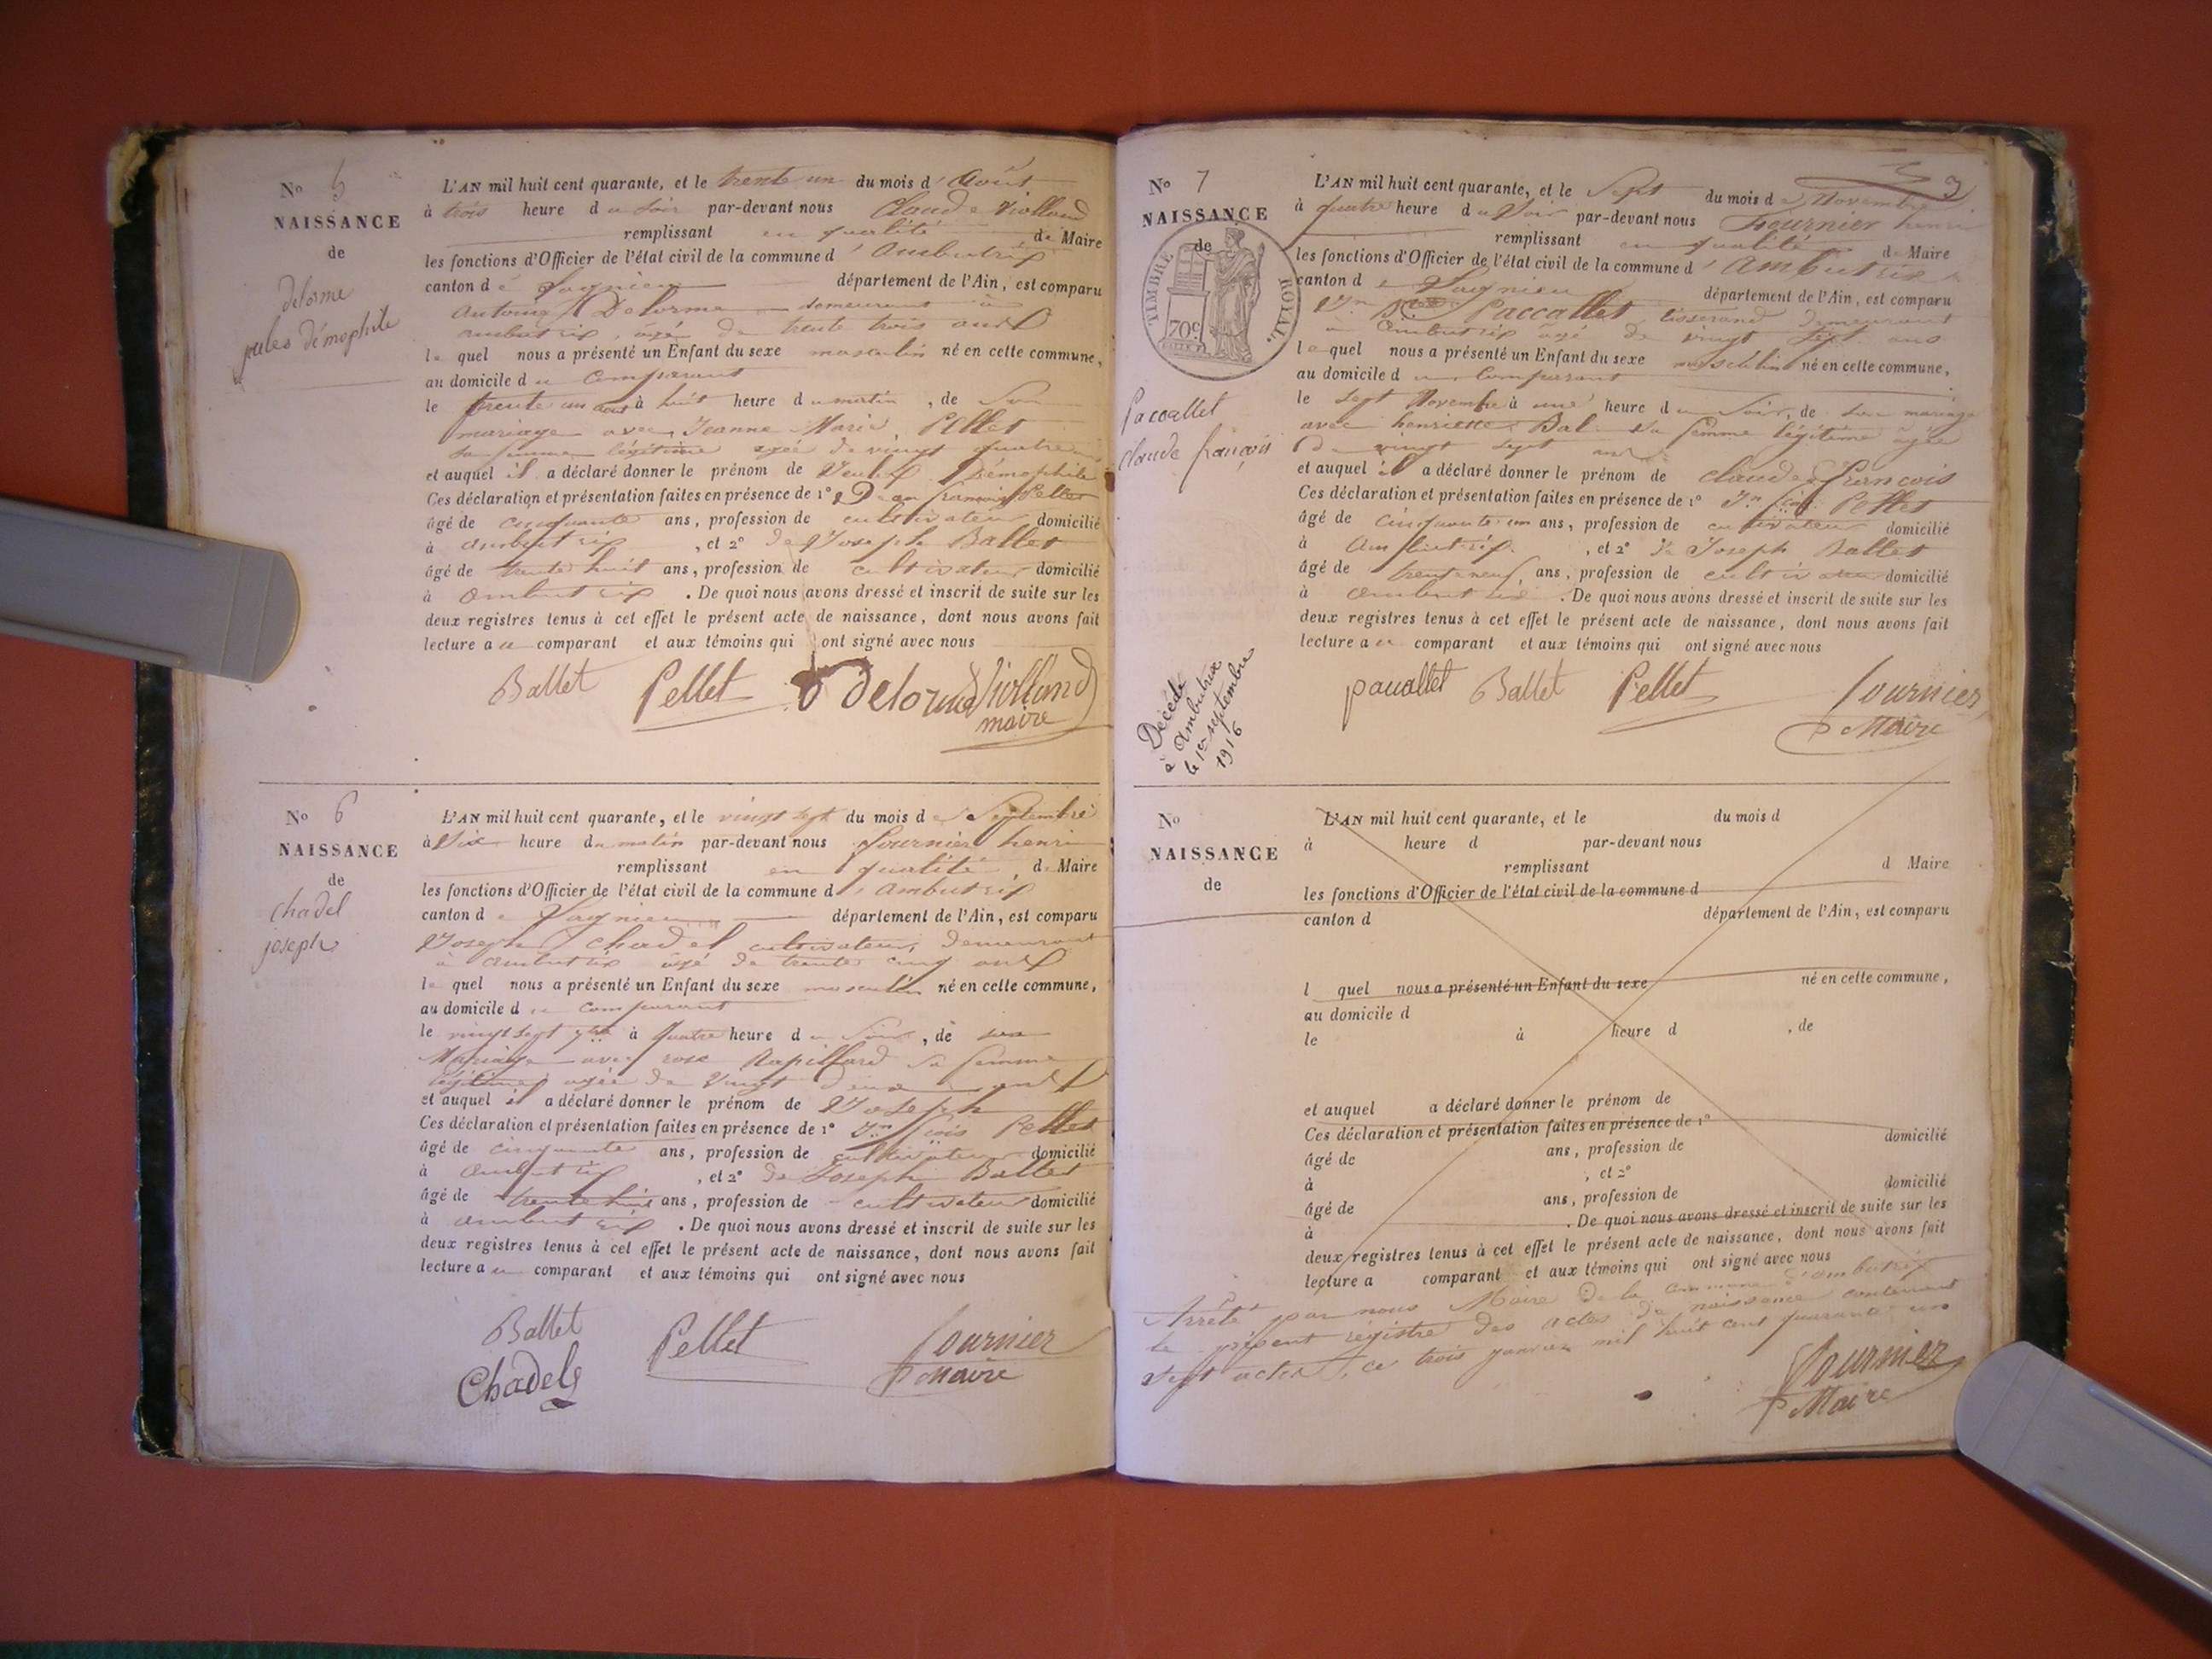 No 5
NAISSANCE
de
delorme
jules démophile
L'AN mil huit cent quarante, et le trente un du mois d'Août
à trois heure du soir par-devant nous Claude Violland
remplissant en qualité de Maire
les fonctions d'Officier de l'état civil de la commune d'ambutrix
canton de Lagnieu département de l'Ain, est comparu
antoine Delorme demeurant à
ambutrix, âgée de trente trois ans
lequel nous a présenté un Enfant du sexe masculin né en cette commune,
au domicile du comparant
le trente un aout à huit heure du matin, de son
mariage avec Jeanne Marie Pellet
sa femme légitime agée de vingt quatre
et auquel il a déclaré donner le prénom de Démophile
Ces déclaration et présentation faites en présence de 1° Jean françois Pellet
âgé de cinquante ans, profession de cultivateur domicilié
à ambutrix, et 2° de Joseph Ballet
âgé de trente huit ans, profession de cultivateur domicilié
à ambutrix. De quoi nous avons dressé et inscrit de suite sur les
deux registres tenus à cet effet le présent acte de naissance, dont nous avons fait
lecture au comparant et aux témoins qui ont signé avec nous
Ballet Pellet delorme Violland
maire
No 6
NAISSANCE
de
chadel
joseph
L'AN mil huit cent quarante, et le vingt sept du mois de Septembre
à Dix heure du matin par-devant nous fournier henri
remplissant en qualité de Maire
les fonctions d'Officier de l'état civil de la commune d'ambutrix
canton de Lagnieu département de l'Ain, est comparu
Joseph chadel cultivateur, demeurant
à ambutrix âgé de trente cinq ans
lequel nous a présenté un Enfant du sexe masculin né en cette commune,
au domicile du comparant
le vingt sept 7bre à quatre heure du, de son
Mariage avec rose Rapillard sa femme
légitime agée de Vingt deux ans
et auquel il a déclaré donner le prénom de Joseph
Ces déclaration et présentation faites en présence de 1° Jn fçois Pellet
âgé de cinquante ans, profession de cultivateur domicilié
à ambutrix, et 2° de Joseph Ballet
âgé de trente huit ans, profession de cultivateur domicilié
à ambutrix. De quoi nous avons dressé et inscrit de suite sur les
deux registres tenus à cet effet le présent acte de naissance, dont nous avons fait
lecture au comparant et aux témoins qui ont signé avec nous
Ballet Pellet fournier
Chadel Maire
3
No 7
NAISSANCE
de
TIMBRE ROYAL.
70c
Paccallet
claude françois
L'AN mil huit cent quarante, et le Sept du mois de Novembre
à quatre heure du Soir par-devant nous Fournier henri
remplissant en qualité de Maire
les fonctions d'Officier de l'état civil de la commune d'ambutrix
canton de Lagnieu département de l'Ain, est comparu
Paccallet tisserand demeurant
à ambutrix âgé de vingt sept ans
lequel nous a présenté un Enfant du sexe masculin né en cette commune,
au domicile du comparant
le sept Novembre à une heure du Soir, de son mariage
avec henriette Bal sa femme légitime agée
de vingt sept ans
et auquel il a déclaré donner le prénom de claude françois
Ces déclaration et présentation faites en présence de 1° Jn fçois Pellet
âgé de cinquante un ans, profession de cultivateur domicilié
à ambutrix, et 2° de Joseph Ballet
âgé de trente neuf ans, profession de cultivateur domicilié
à ambutrix. De quoi nous avons dressé et inscrit de suite sur les
deux registres tenus à cet effet le présent acte de naissance, dont nous avons fait
lecture au comparant et aux témoins qui ont signé avec nous
pacallet Ballet Pellet fournier
Maire
Décédé
à Ambutrix
le 1er septembre
1916
No
NAISSANCE
de
L'AN mil huit cent quarante, et le du mois d
à heure d par-devant nous
remplissant d Maire
les fonctions d'Officier de l'état civil de la commune d
canton d département de l'Ain, est comparu
l quel nous a présenté un Enfant du sexe né en cette commune,
au domicile d
le à heure d , de
et auquel a déclaré donner le prénom de
Ces déclaration et présentation faites en présence de 1°
âgé de ans, profession de domicilié
à , et 2°
âgé de ans, profession de domicilié
à . De quoi nous avons dressé et inscrit de suite sur les
deux registres tenus à cet effet le présent acte de naissance, dont nous avons fait
lecture a comparant et aux témoins qui ont signé avec nous
Arrêté par nous Maire de la commune d'ambutrix
le présent régistre des actes de naissance contenant
sept actes, ce trois janvier mil huit cent quarante un
fournier
Maire